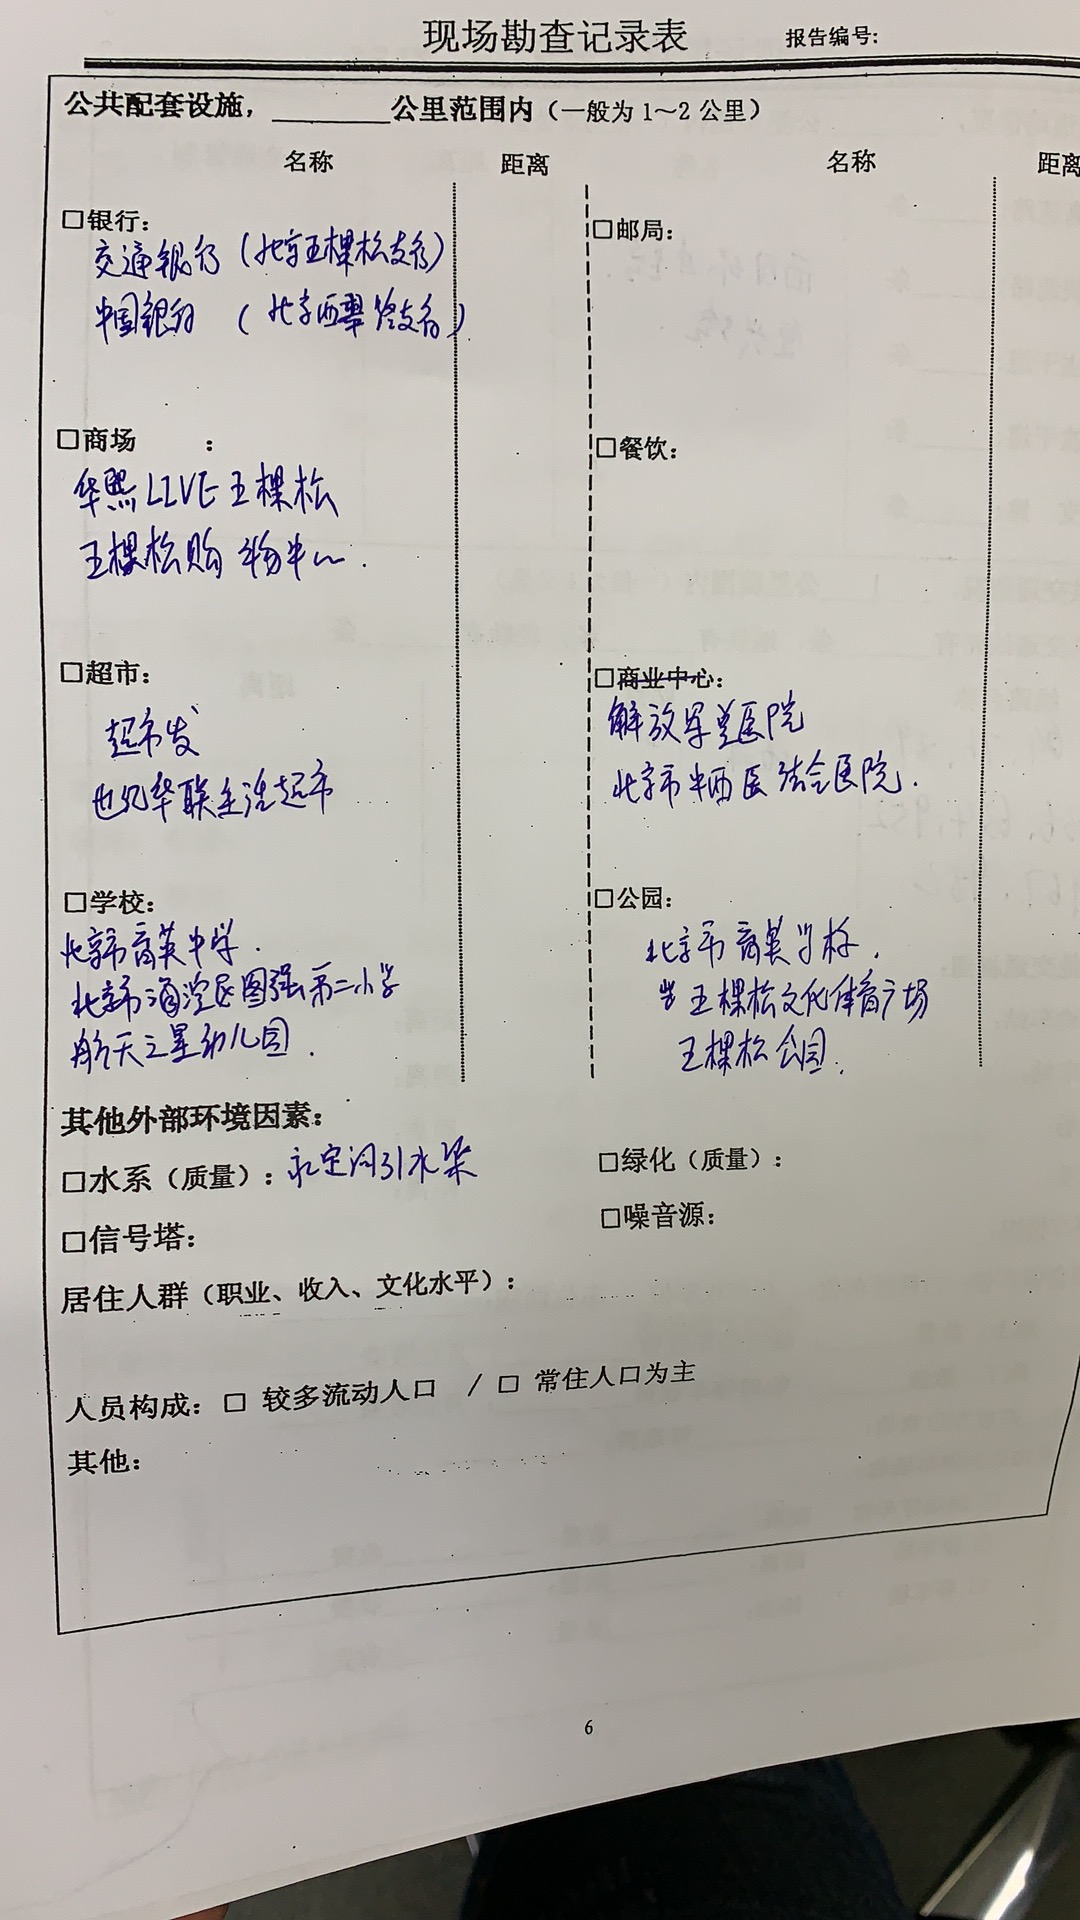 现场勘查记录表 报告编号:
公共配套设施, ________公里范围内（一般为 1～2 公里）
名称 距离 名称 距离
□银行:
交通银行（北京五棵松支行）
中国银行（北京西翠路支行）
□邮局:
□商场 :
华熙LIVE五棵松
五棵松购物中心.
□餐饮:
□超市:
超市发
北京华联生活超市
□商业中心:
解放军总医院
北京市中西医结合医院.
□学校:
北京市育英中学.
北京市海淀区图强第二小学
航天之星幼儿园.
□公园:
北京市育英学校.
五棵松文化体育广场
五棵松公园.
其他外部环境因素:
□水系（质量）: 永定河引水渠
□绿化（质量）:
□信号塔:
□噪音源:
居住人群（职业、收入、文化水平）:
人员构成: □ 较多流动人口 / □ 常住人口为主
其他:
6